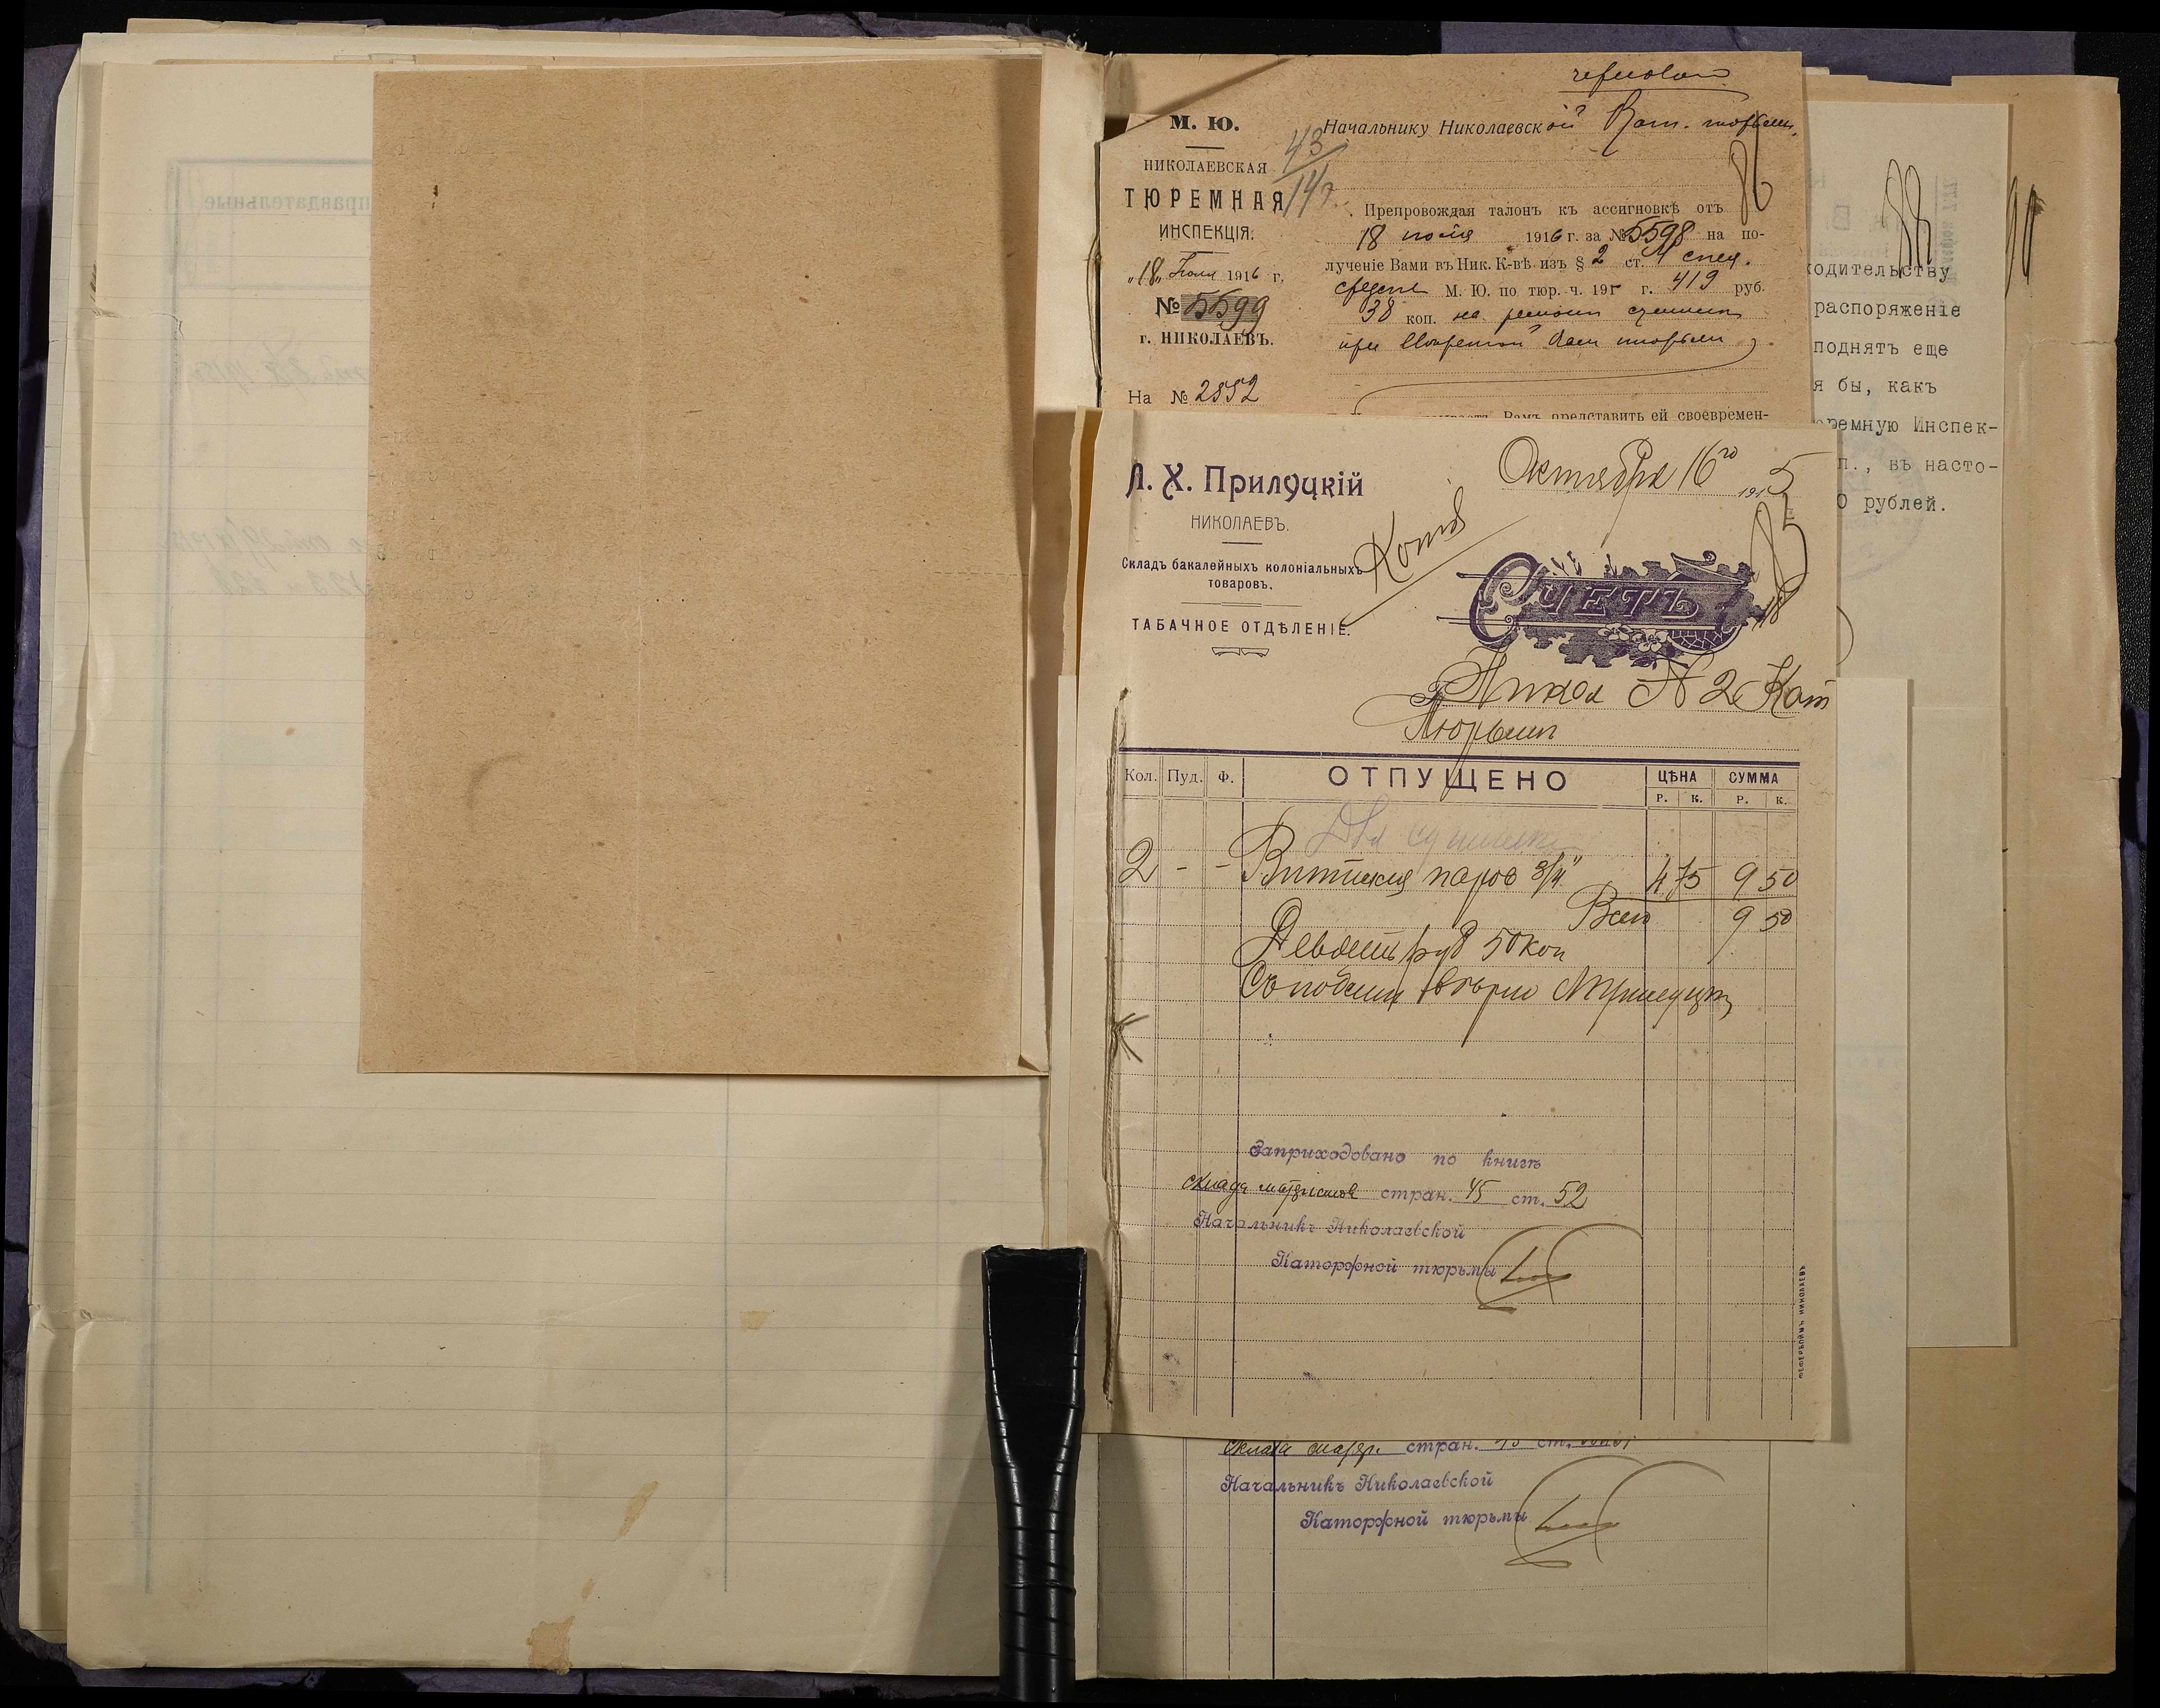 М. Ю.
НИКОЛАЕВСКАЯ
ТЮРЕМНАЯ
ИНСПЕКЦІЯ.
„18„ Іюля 1916 г.
№ 5599
г. НИКОЛАЕВЪ.
На № 2552
43
147
Начальнику Николаевской Кат. тюрьмы
86
Препровождая талонъ къ ассигновкѣ отъ
18 июля 1916 г. за № 5598 на по-
лученіе Вами въ Ник. К-вѣ изъ § 2 ст. 4 спец.
средств М. Ю. по тюр. ч. 191 г. 419 руб.
38 коп. на ремонт сушилки
при Кат тюрьмы
Вамъ представить ей своевремен-
88
90
одительству
распоряженіе
поднятъ еще
я бы, какъ
ремную Инспек-
п., въ насто-
0 рублей.
Л. Х. Прилуцкій
НИКОЛАЕВЪ.
Складъ бакалейныхъ колоніальныхъ
товаровъ.
ТАБАЧНОЕ ОТДѢЛЕНІЕ.
Октября 16го 1915
Копія
85
СЧЕТЪ
Никол № 2 Кат
Тюрьми
Кол. Пуд. Ф. ОТПУЩЕНО ЦѢНА СУММА
Р. К. Р. К.
Для сушилки
2 - - паров 3/4" 4 75 9 50
Всего 9 50
Девять руб 50 коп
Съ подлин вѣрно
Заприходовано по книгѣ
склада матеріалов стран. 45 ст. 52
Начальникъ Николаевской
Каторжной тюрьмы
ЛЕФЕРБОЙМЪ НИКОЛАЕВЪ
склада матер. стран. 45 ст.
Начальникъ Николаевской
Каторжной тюрьмы